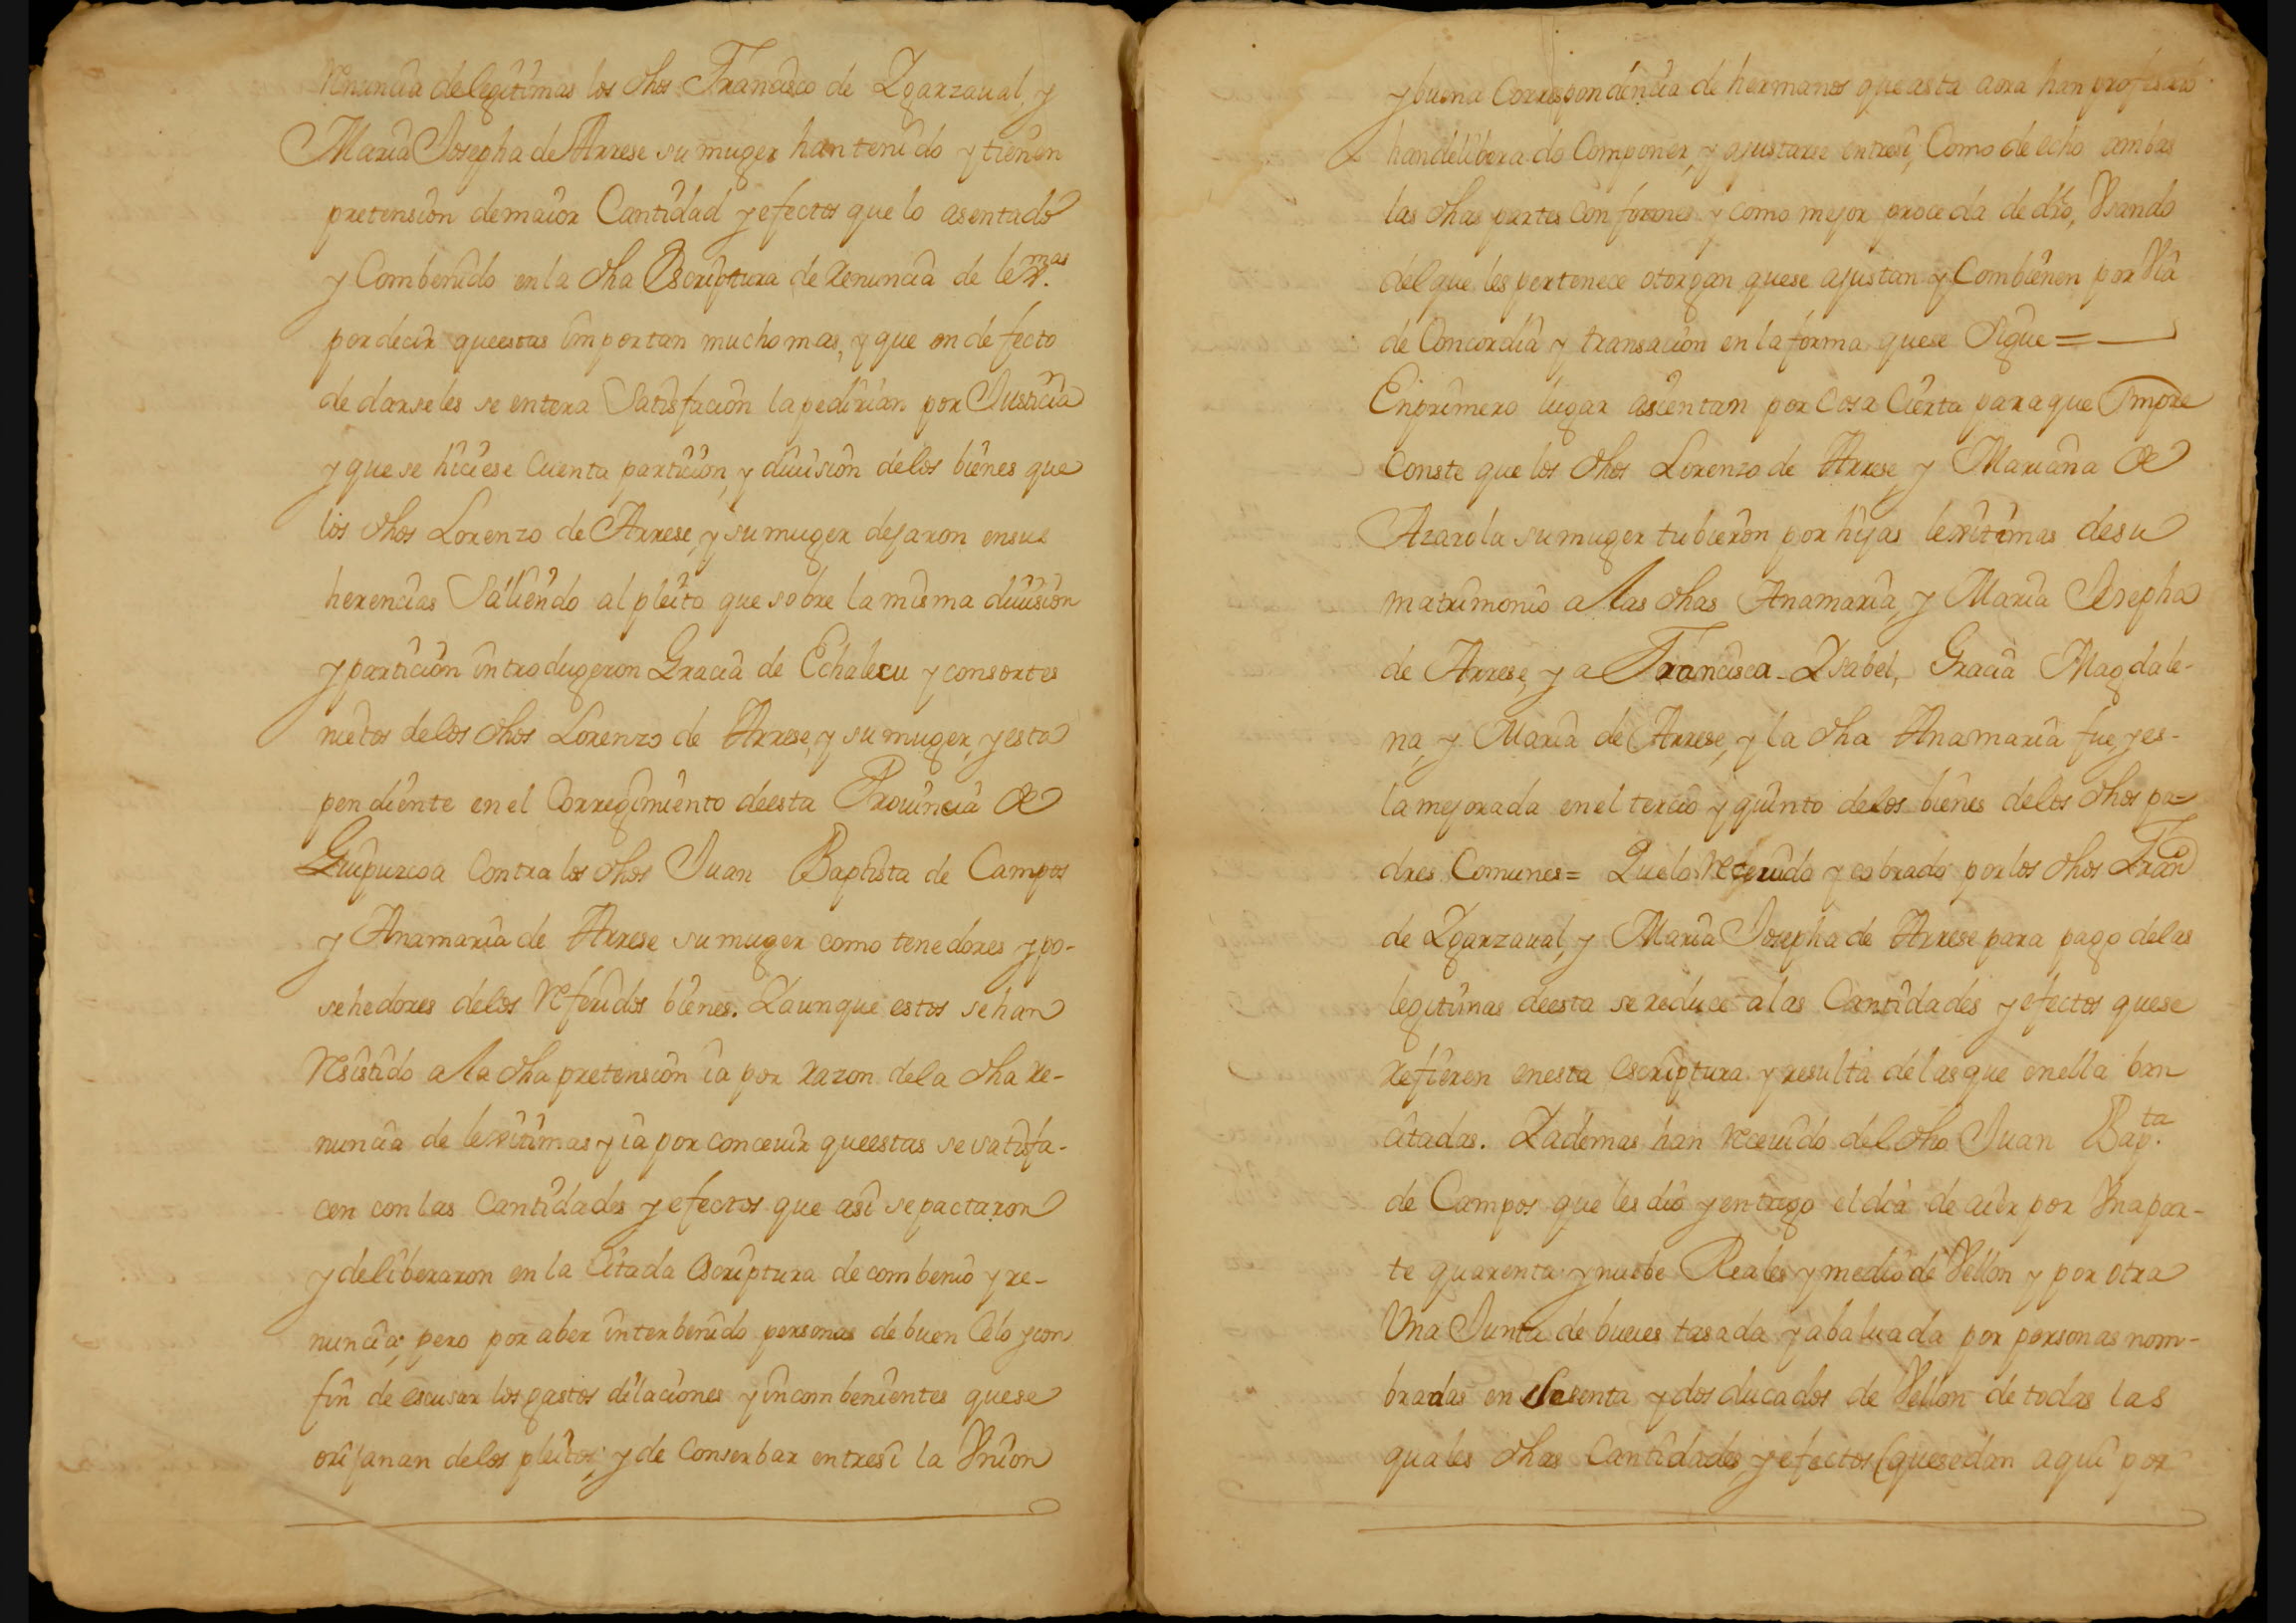 renuncia de legitimas los dhos Francisco de Ygarzaual, y
Maria Josepha de Arrese su muger han tenido y tienen
pretension de maior Cantidad y efectos que lo asentado
y Combenido en la dha Escriptura de renuncia de lex.mas
por decir que estas importan mucho mas, y que en defecto
de darseles se entera Satisfacion la pedirian por Justicia
y que se hiciese Cuenta particion, y diuision de los bienes que
los dhos Lorenzo de Arrese, y su muger dejaron en sus
herencias Saliendo al pleito que sobre la misma diuision
y particion introdugeron Gracia de Echalecu y consortes
nietos de los dhos Lorenzo de Arrese, y su muger, y esta
pendiente en el Corregimiento de esta Prouincia de
Guipuzcoa Contra los dhos Juan Baptista de Campos
y Anamaria de Arrese su muger como tenedores y po-
sehedores de los referidos bienes. Y aunque estos se han
resistido a la dha pretension ia por razon de la dha re-
nuncia de lexitimas y ia por conceuir que estas se satisfa-
cen con las Cantidades y efectos que asi se pactaron
y deliberaron en la Citada escriptura de combenio y re-
nuncia; pero por aber interbenido personas de buen Celo y con
fin de escusar los gastos dilaciones y incombenientes que se
orijanan de los pleitos; y de Conserbar entresi la Vnion
y buena Correspondencia de hermanos que asta aora han profesado
han deliberado Componer, y ajustarse entresi, Como de echo ambas
las dhas partes conformes y como mejor proceda de dro, Vsando
del que les pertenece otorgan que se ajustan y Combienen por Via
de Concordia y transacion en la forma que se Sigue =
En primero lugar asientan por Cosa Cierta para que Smpre
Conste que los dhos Lorenzo de Arrese, y Mariana de
Azarola su muger tubieron por hijas lexitimas de su
matrimonio a las dhas Anamaria, y Maria Josepha
de Arrese, y a Francisca Ysabel, Gracia Magdale-
na, y Maria de Arrese, y la dha Anamaria fue, y es-
la mejorada en el tercio y quinto de los bienes de los dhos pa=
dres Comunes = Que lo receuido y cobrado por los dhos Franco
de Ygarzaual, y Maria Josepha de Arrese para pago de las
legitimas de esta se reduce a las Cantidades y efectos que se
refieren en esta escriptura y resulta de las que en ella ban
citadas. Y ademas han receuido del dho Juan Bap.ta
de Campos que les dio y entrego el dia de aier por Vna par-
te quarenta y nuebe Reales y medio de Vellon y por otra
Vna Junta de bueies tasada y abaluada por personas nom-
bradas en sesenta y dos ducados de Vellon de todas las
quales dhas Cantidades, y efectos (que se dan aqui por